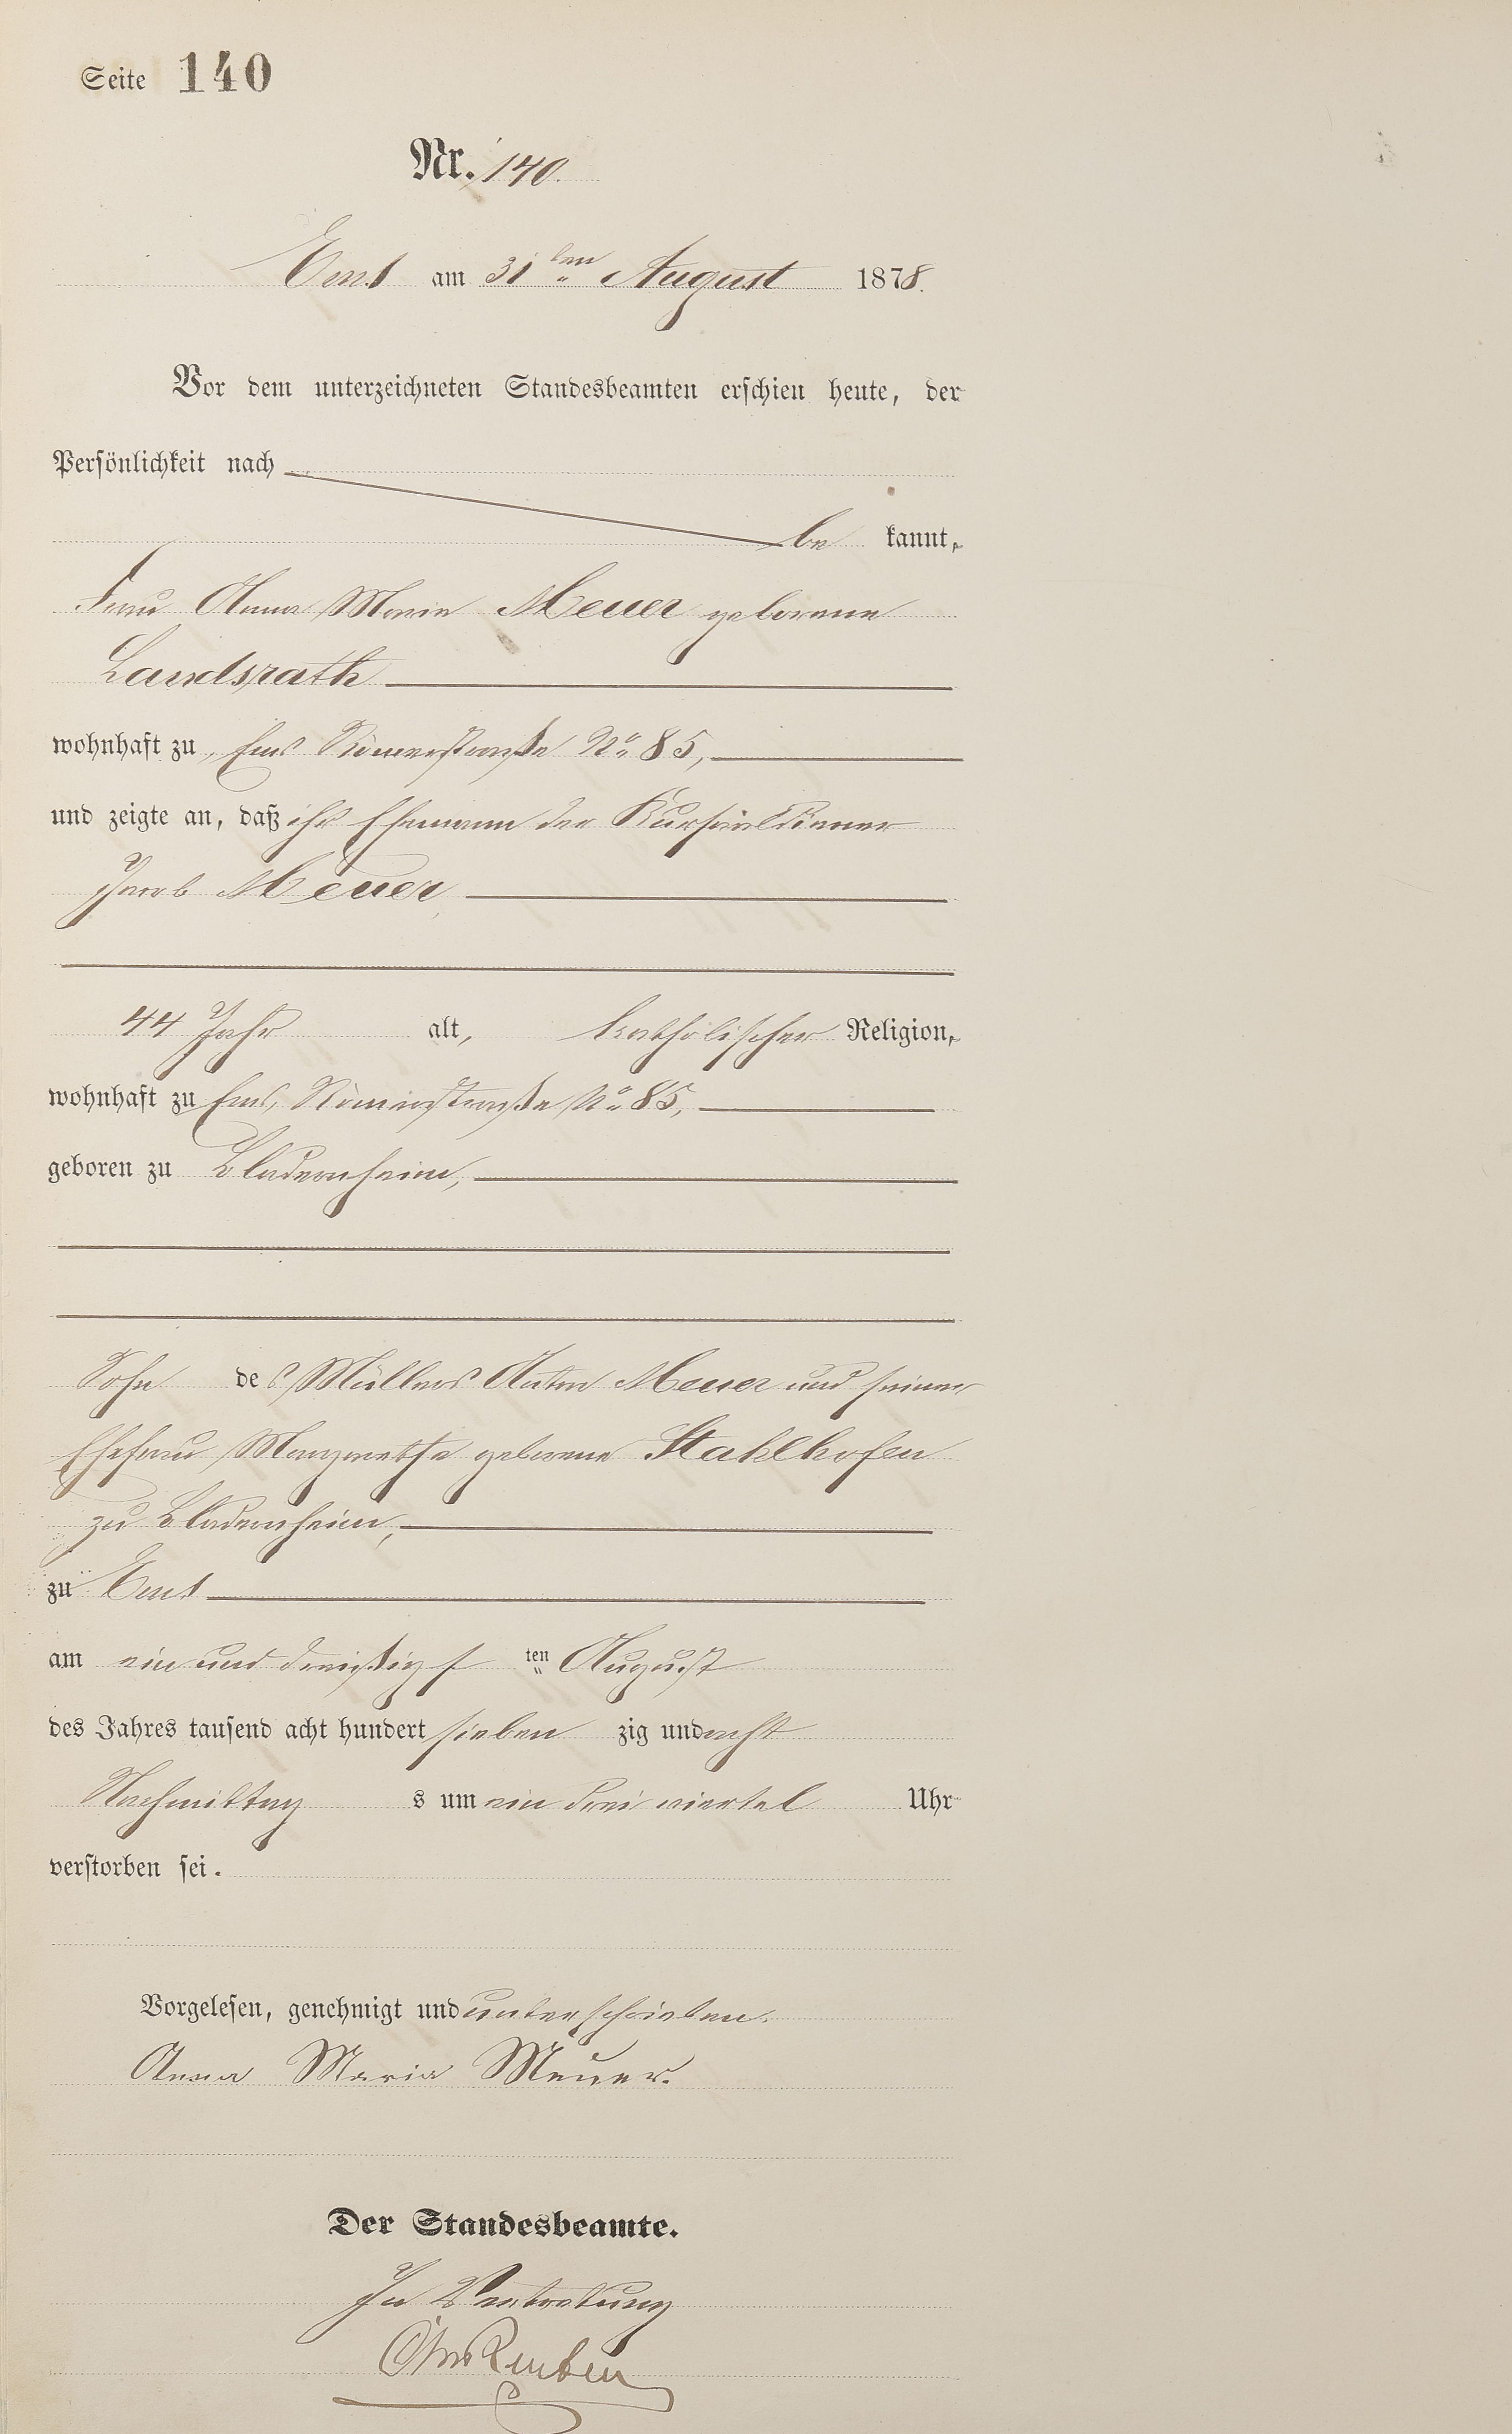 Seite 140
Nr. 140.
Ems am 31ten August 1878.
Vor dem unterzeichneten Standesbeamten erschien heute, der
Persönlichkeit nach
be kannt,
Frau Anna Maria Meuer geborene
Landsrath
wohnhaft zu Ems Römerstraße No 85,
und zeigte an, daß ihr Ehemann der Kursaaldiener
Jacob Meuer
44 Jahr alt, katholischer Religion,
wohnhaft zu Ems, Römerstraße No 85,
geboren zu Bladernheim,
Sohn des Müllers Anton Meuer und seiner
Ehefrau Margaretha geborene Stahlhofen
zu Bladernheim,
zu Ems
am ein und dreißigs ten August
des Jahres tausend acht hundert sieben zig und acht
Nachmittag s um ein drei viertel Uhr
verstorben sei.
Vorgelesen, genehmigt und unterschrieben.
Anna Maria Meuer.
Der Standesbeamte.
In Vertretung